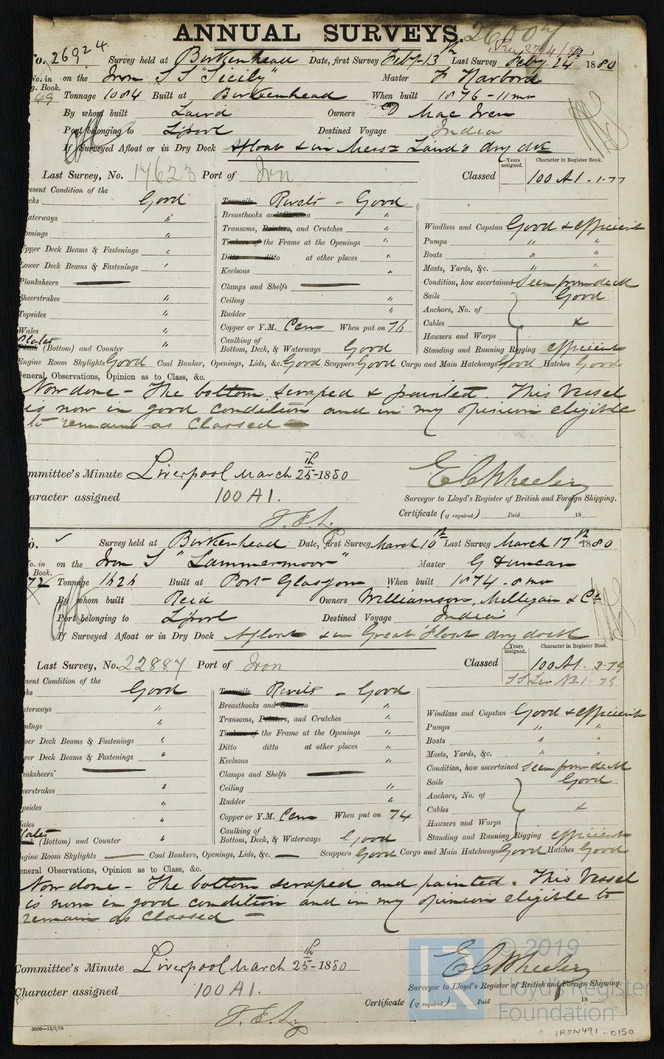 ANNUAL SURVEYS.
No. 26924 Survey held at Birkenhead Date, first Survey Feby 13th Last Survey Feby 24th 1880
No. in on the Iron SS "Sicily" Master
Book. Tonnage 1084 Built at Birkenhead When built 1876 - 11 mo
By whom built Laird Owners D Mac Iver
Port belonging to Lpool Destined Voyage India
If Surveyed Afloat or in Dry Dock Afloat & in Messrs Laird's dry dk
Last Survey, No. 17623 Port of Iron Classed Years assigned. Character in Register Book. 100 A1 - 1-77
esent Condition of the
cks Good Rivets - Good
aterways " Breasthooks and " Windlass and Capstan Good & efficient
mings " Transoms, and Crutches " Pumps " "
pper Deck Beams & Fastenings " of the Frame at the Openings " Boats " "
ower Deck Beams & Fastenings " at other places " Masts, Yards, &c. " "
Planksheers Keelsons " Condition, how ascertained Seen from deck
Sheerstrakes " Clamps and Shelfs Sails Good
Topsides " Ceiling " Anchors, No. of
Wales " Rudder " Cables
Plates (Bottom) and Counter " Copper or Y.M. Cem When put on 76 Hawsers and Warps
Caulking of Bottom, Deck, & Waterways Good Standing and Running Rigging efficient
Engine Room Skylights Good Coal Bunker, Openings, Lids, &c. Good Scuppers Good Cargo and Main Hatchways Good Hatches Good
eneral Observations, Opinion as to Class, &c.
Now done - The bottom scraped & painted. This Vessel
is now in good condition and in my opinion eligible
to remain as Classed -
ommittee's Minute Liverpool March 25th - 1880
haracter assigned 100 A1.
Surveyor to Lloyd's Register of British and Foreign Shipping.
Certificate (if required) Paid 18
o. Survey held at Birkenhead Date, first Survey March 10th Last Survey March 17th 1880
o. in on the Iron S "Lammermoor" Master G Duncan
Book. 72 Tonnage 1626 Built at Port Glasgow When built 1874. 8 mo
By whom built Reid Owners Williamson, Milligan & Co
Port belonging to Lpool Destined Voyage India
If Surveyed Afloat or in Dry Dock Afloat & in Great Float dry dock
Last Survey, No. 22887 Port of Iron Classed Years assigned. Character in Register Book. 100 A1. 3-79
esent Condition of the
ks Good Rivets - Good
aterways " Breasthooks and " Windlass and Capstan Good & efficient
mings " Transoms, and Crutches " Pumps " "
per Deck Beams & Fastenings " of the Frame at the Openings " Boats " "
wer Deck Beams & Fastenings " Ditto ditto at other places " Masts, Yards, &c. " "
nksheers Keelsons " Condition, how ascertained Seen from deck
eerstrakes " Clamps and Shelfs Sails Good
psides " Ceiling " Anchors, No. of
ales " Rudder " Cables
(Bottom) and Counter " Copper or Y.M. Cem When put on 74 Hawsers and Warps
Caulking of Bottom, Deck, & Waterways Good Standing and Running Rigging efficient
ngine Room Skylights Coal Bunkers, Openings, Lids, &c. Scuppers Good Cargo and Main Hatchways Good Hatches Good
eneral Observations, Opinion as to Class, &c.
Now done - The bottom scraped and painted. This Vessel
is now in good condition and in my opinion eligible to
remain as Classed -
Committee's Minute Liverpool March 25th - 1880
Character assigned 100 A1.
Surveyor to Lloyd's Register of British and Foreign Shipping.
Certificate (if required) Paid 18
© 2019
Lloyd's Register
Foundation
IRON491-0150